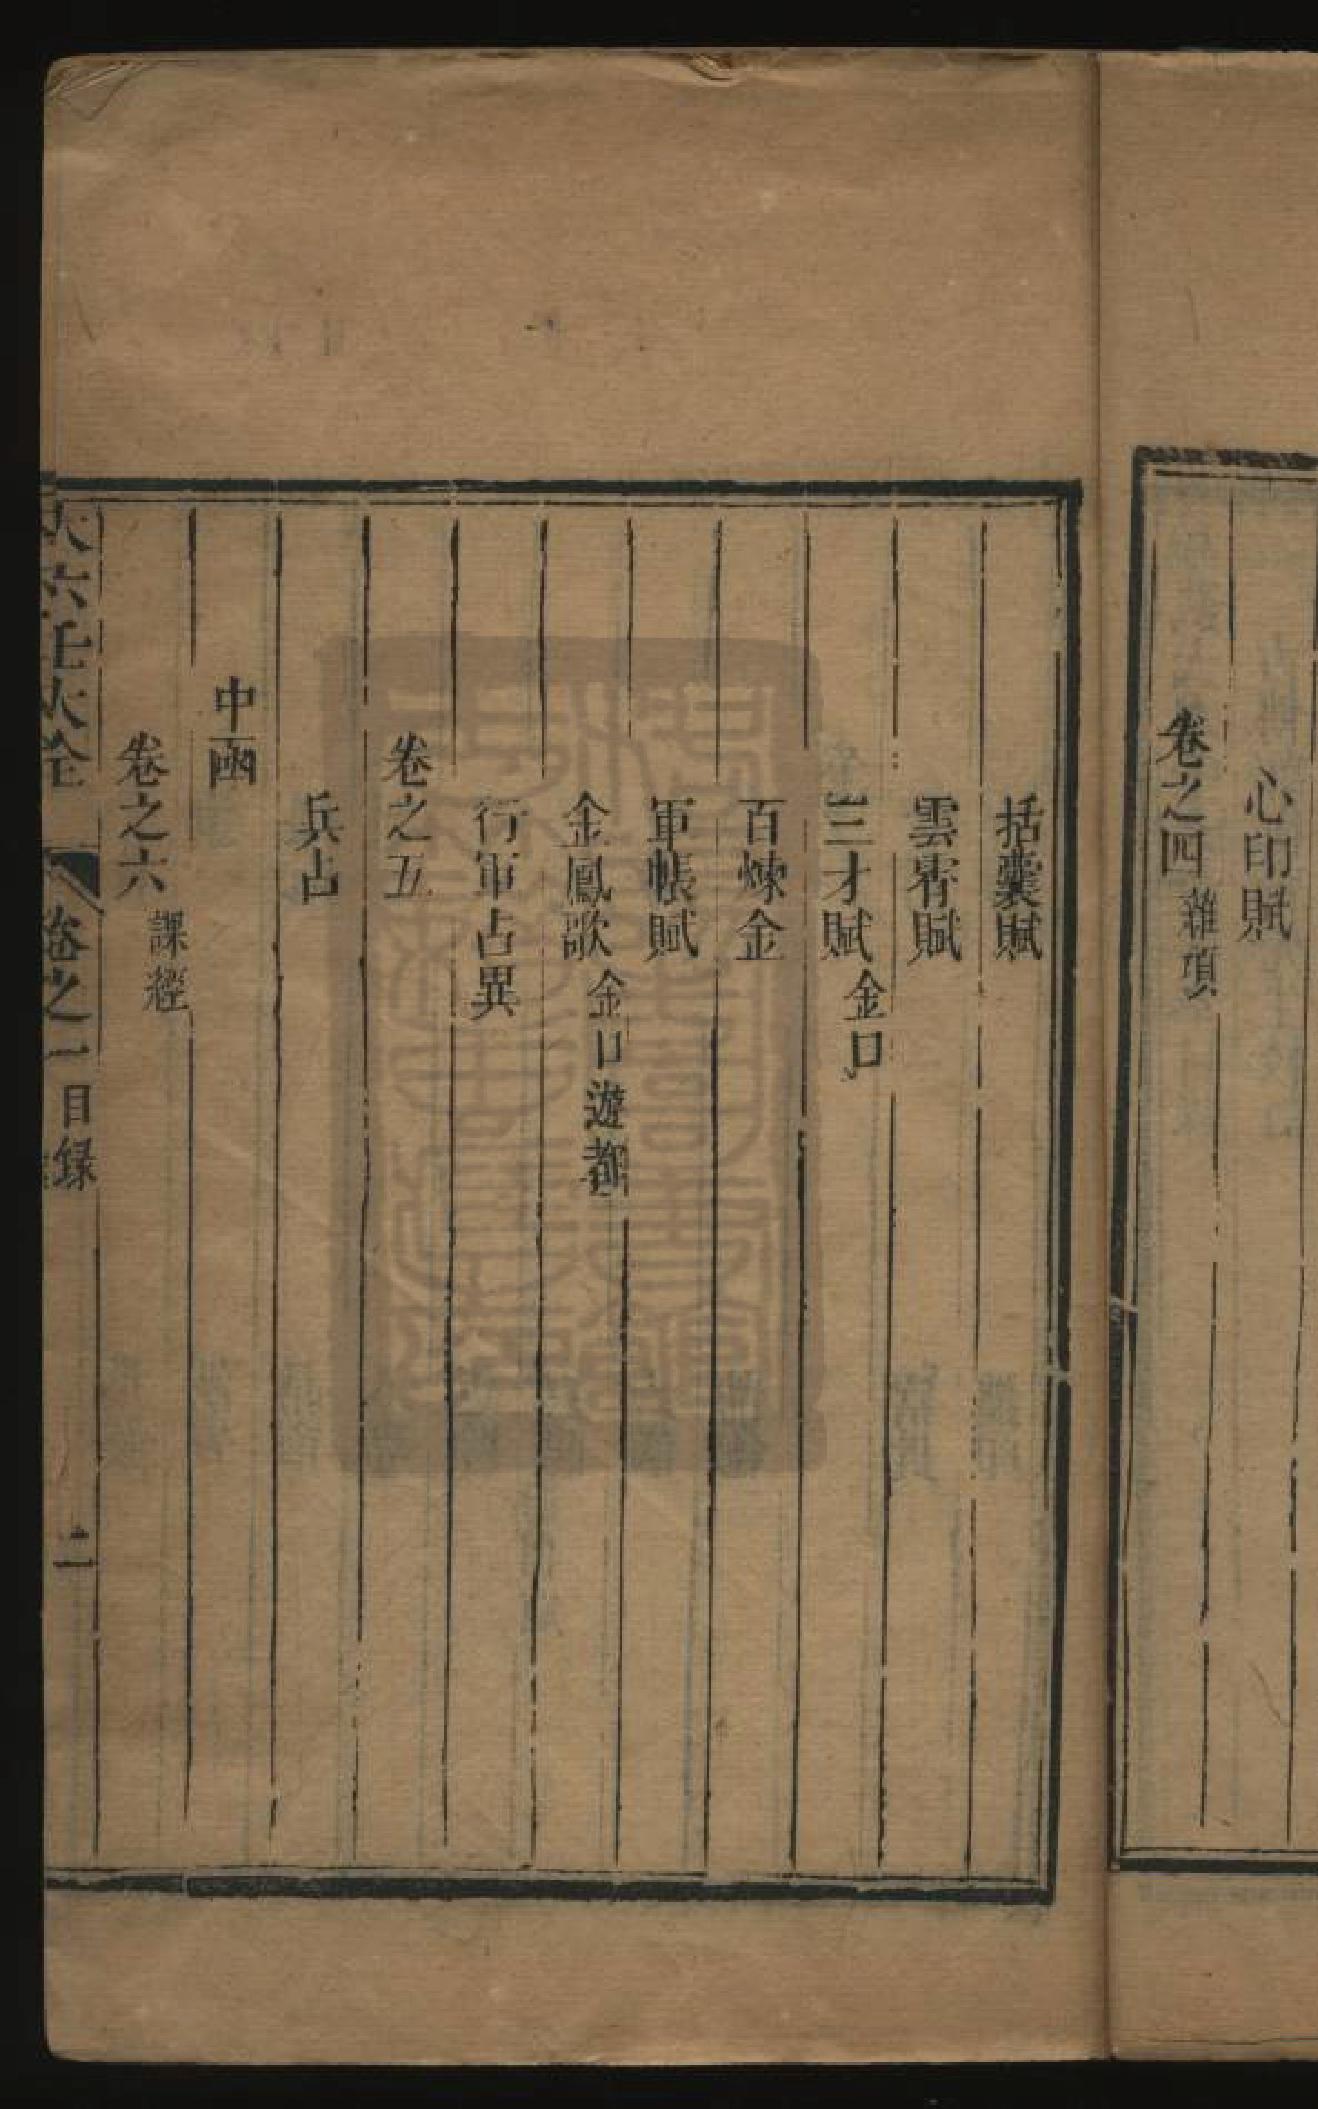 心印賦
卷之四 雜項
括囊賦
雲霄賦
三才賦 金口
百煉金
軍帳賦
金鳳歌 金口遊都
行軍占異
卷之五
兵占
中函
卷之六 課經
大六壬大全 卷之一 目録 二